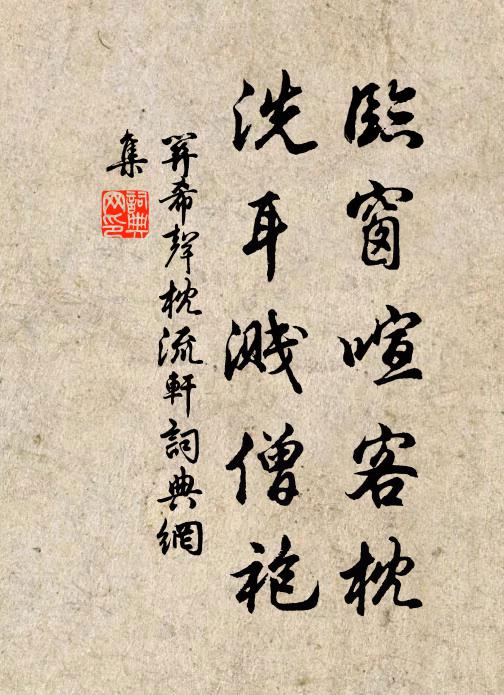 臨窗喧客枕
洗耳濺僧袍
羿希聲枕流軒詞典網
集
詞典
网印